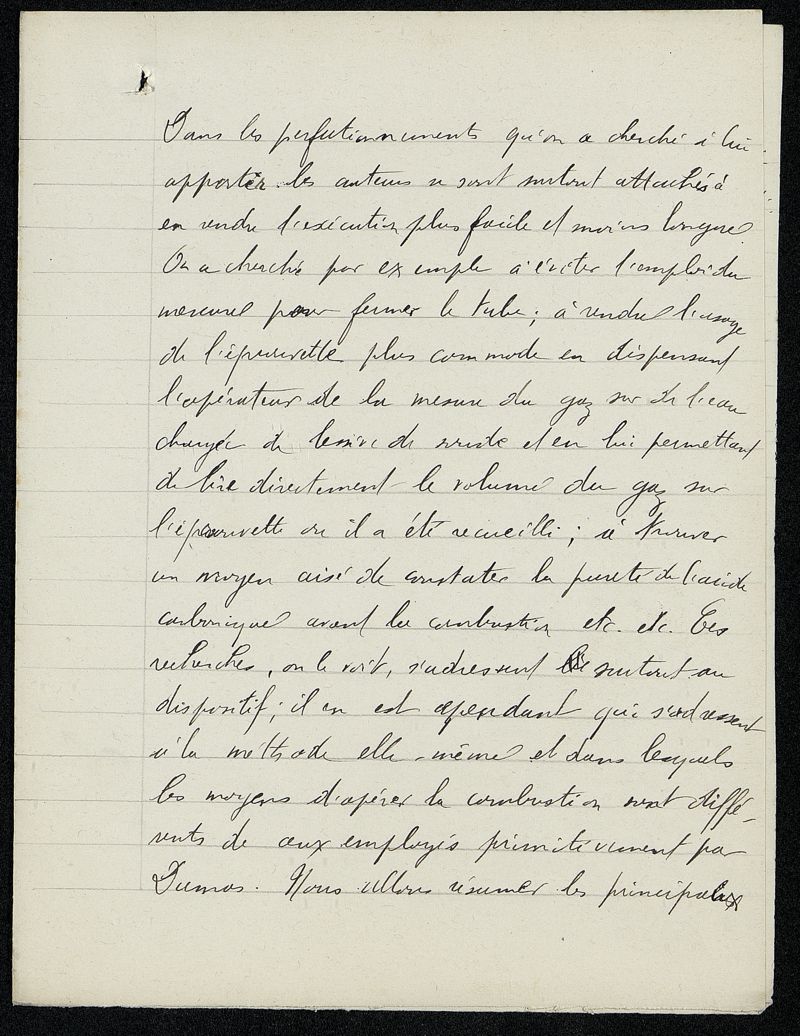 Dans les perfectionnements qu'on a cherché à lui
apporter les auteurs se sont surtout attachés à
en rendre l'exécution plus facile et moins longue.
On a cherché par exemple à éviter l'emploi du
mercure pour fermer le tube ; à rendre l'usage
de l'éprouvette plus commode en dispensant
l'opérateur de la mesure du gaz sur de l'eau
chargée de lessive de soude et en lui permettant
de lire directement le volume du gaz sur
l'éprouvette où il a été recueilli ; à trouver
un moyen aisé de constater la pureté de l'acide
carbonique avant la combustion etc. etc. Ces
recherches, on le voit, s'adressent surtout au
dispositif ; il en est cependant qui s'adressent
à la méthode elle-même et dans lesquels
les moyens d'opérer la combustion sont diffé-
rents de ceux employés primitivement par
Dumas. Nous allons résumer les principales